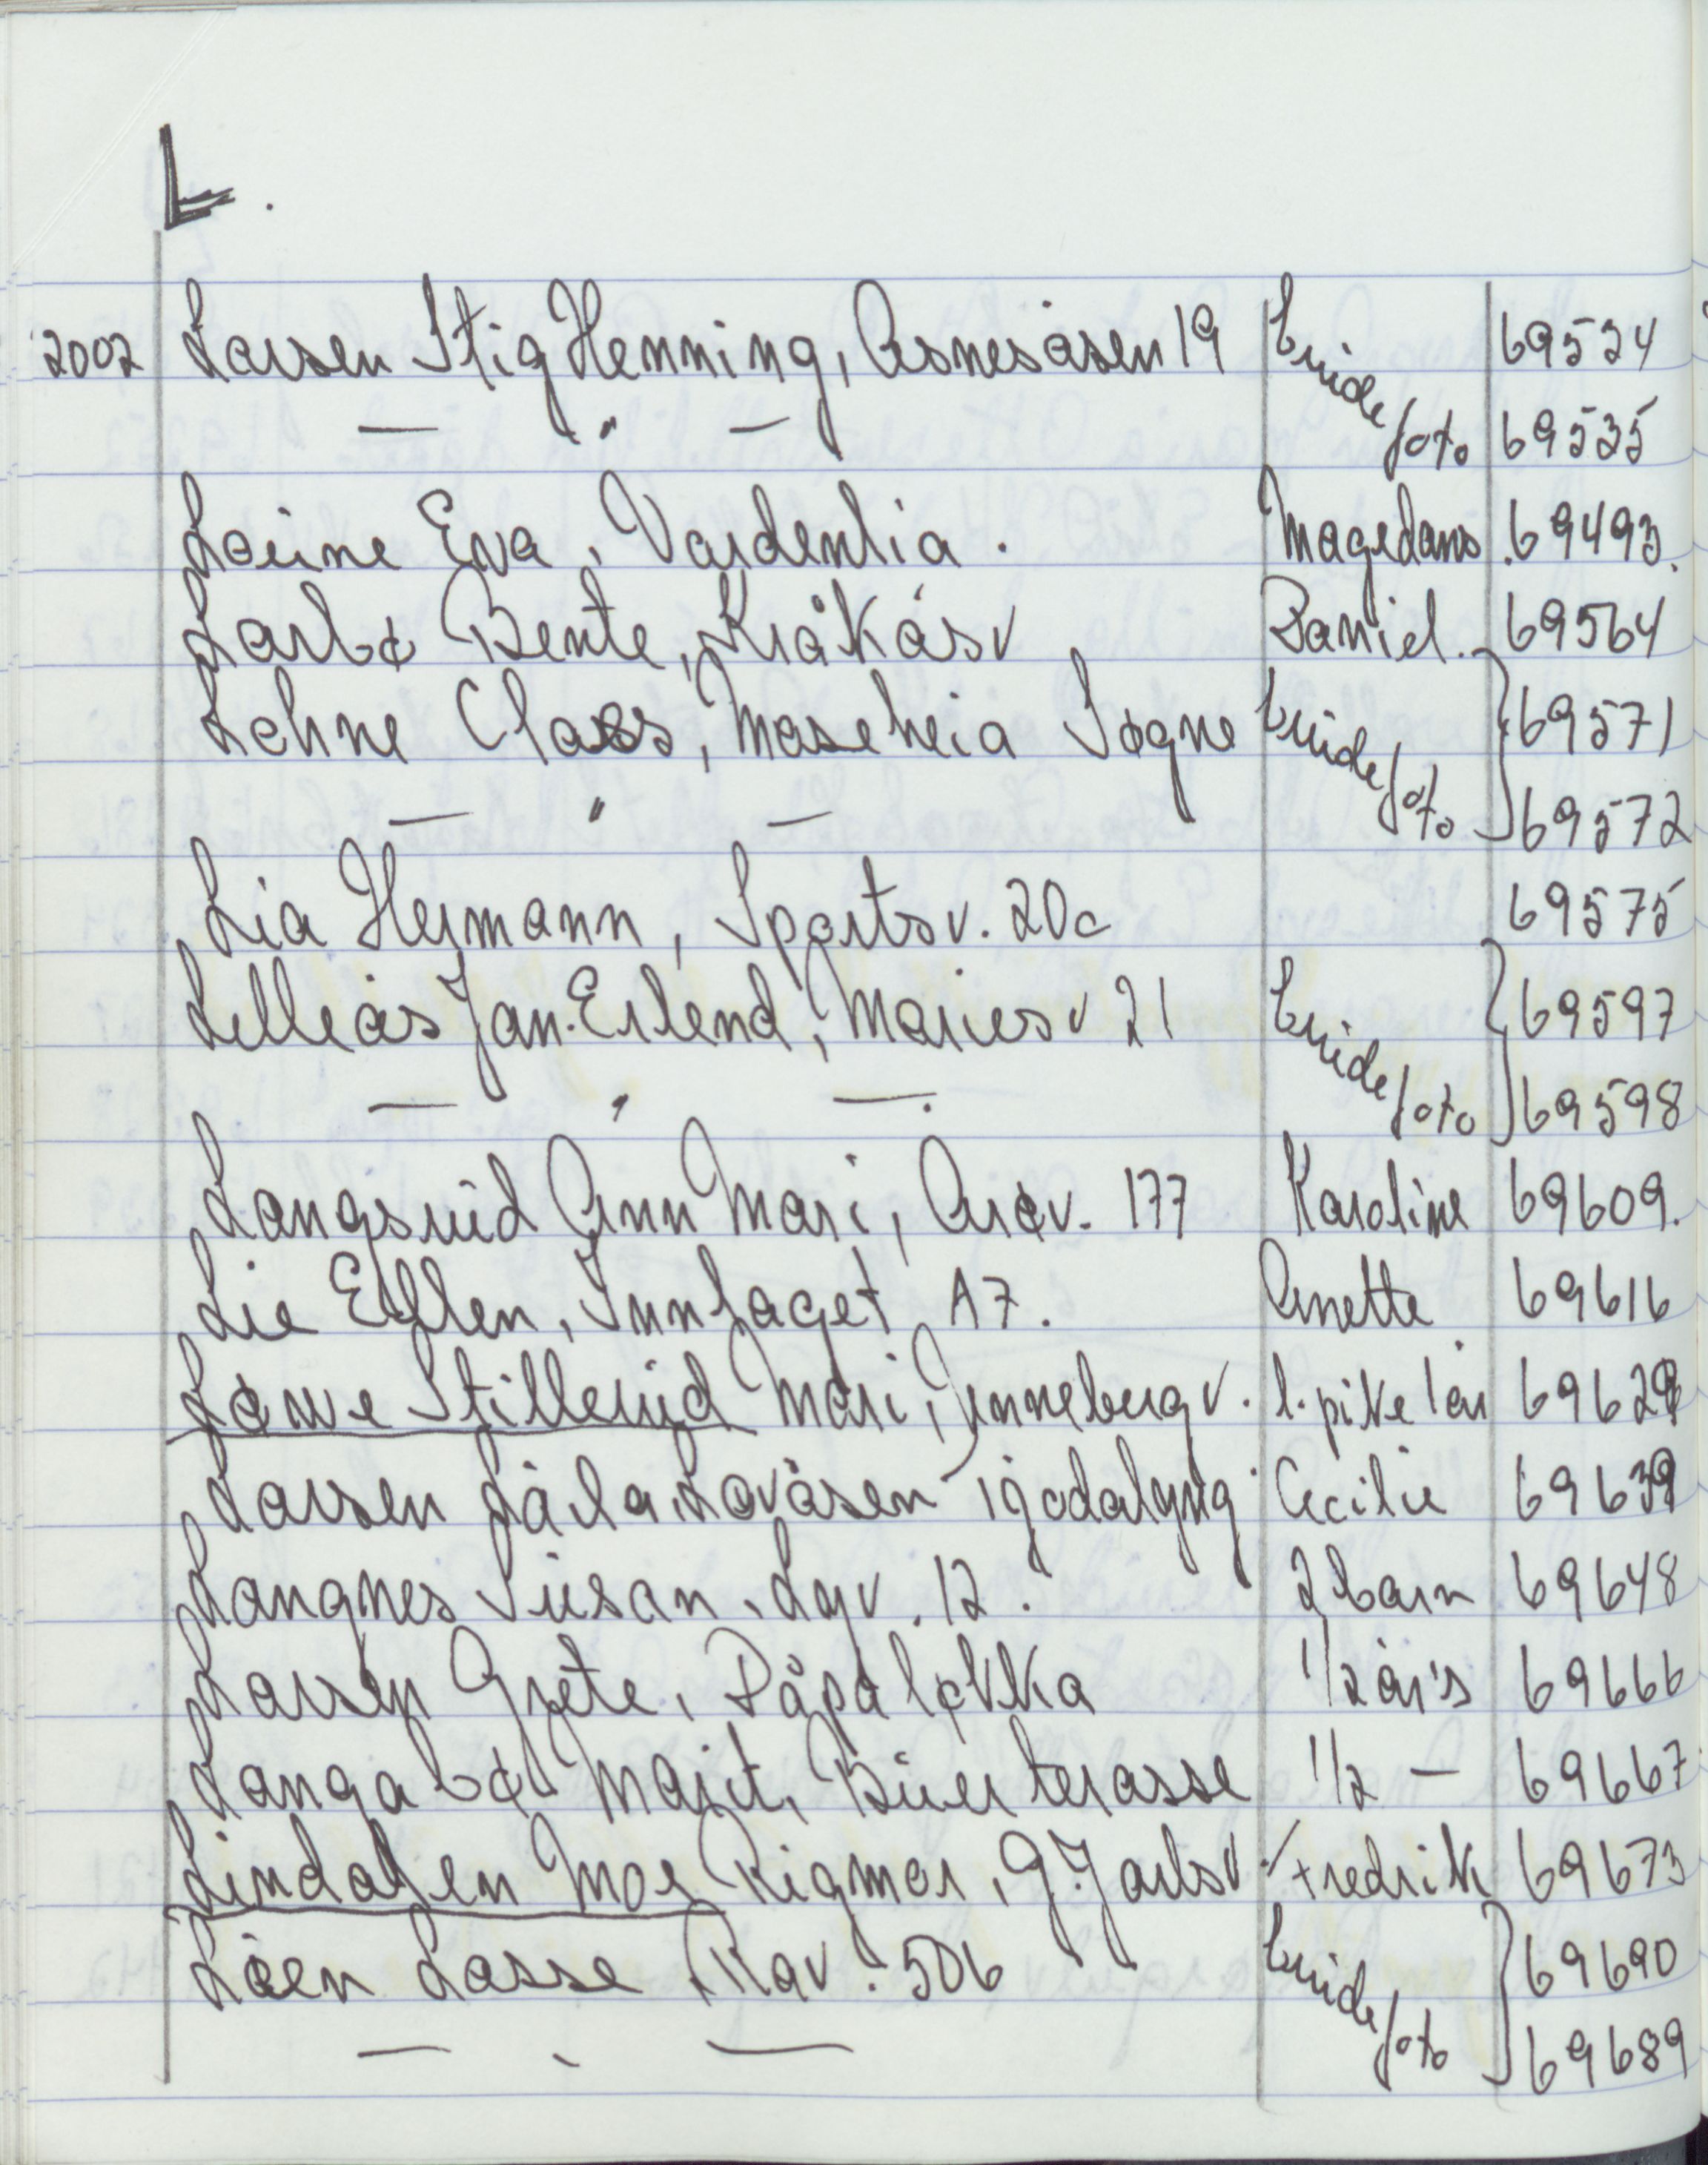 L.
2002 Larsen Stig Henning, Asnesåsen 19 brudefoto 69534
— " — 69535
Laine Eva, Vardenlia. Magedans. 69493.
Larbø Bente, Kråkåsv Daniel. 69564
Lohne Claes, Moseheia Søgne brudefoto 69571
— " — 69572
Lia Hermann, Sportsv. 20c 69575
Lilleås Jan-Erlend, Mariesv 21 brudefoto 69597
— " —. 69598
Langsrud Ann Mari, Arøv. 177 Karoline 69609.
Lie Ellen, Tunlaget A7. Anette 69616
Løwe Stillerud Mari,Unnebergv. l. pike 1år 69629
Larsen Låila, Løvåsen Cecilie 69639
Langnes Susan, Lyv. 12. 2 barn 69648
Larsen Grete, Dåpaløkka 1/2 år's 69666
Langabø Marit, Buerterasse 1/2 — 69667
Lindalen Moe Rigmor, G. Jarlsv. Fredrik 69673
Liøen Lasse, Rav. 506 brudefoto 69690
— " — 69689